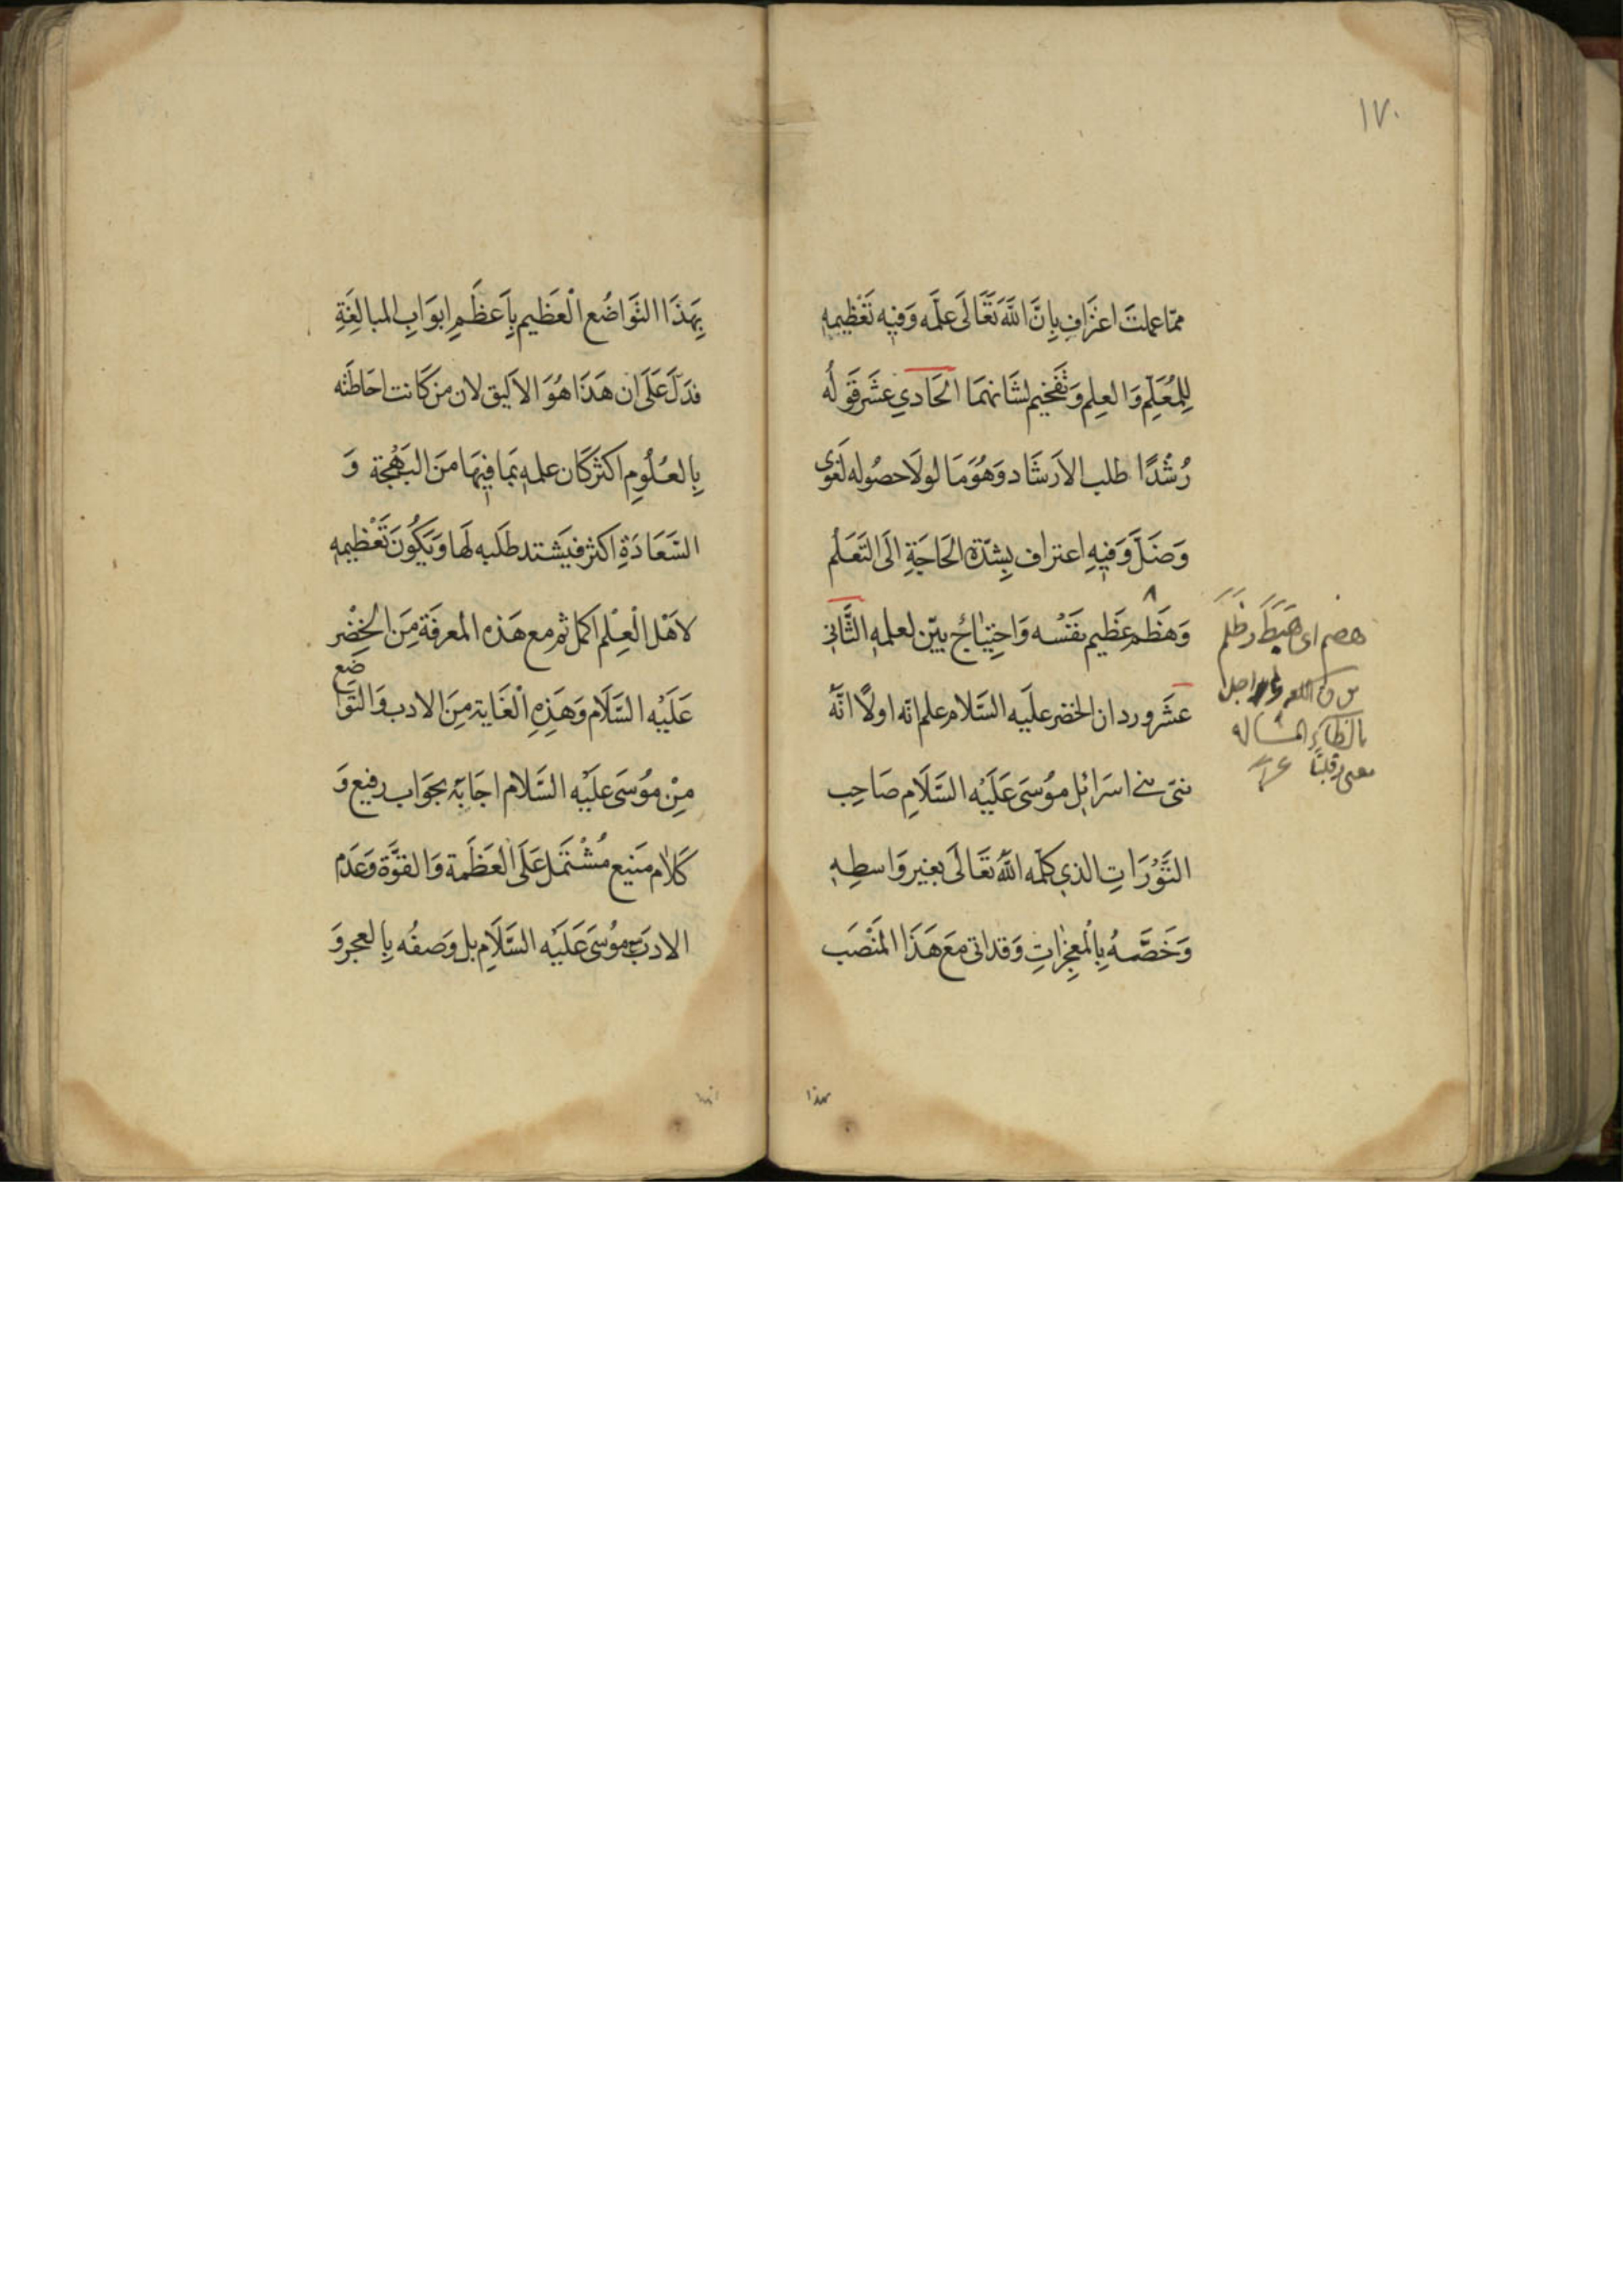 ١٧٠
مما علمت اعتراف بِانَّ اللهَ تَعَالَى علّمَه وَفيه تَعْظيمه
لِلمُعَلِّم وَالعِلم وَتَفخيم لشَانهمَا الحَادي عشَر قَولُه
رُشْدًا طلب الارشَاد وَهُوَ مَا لولَا حصُوله لغَوى
وَضَلَّ وَفيهِ اعتراف بِشدّة الحَاجَةِ الَى التَعَلُم
وَهَظْم عَظِيم بنَفْسه وَاحِتيَاجُ بيّن لعلمه الثَّانِي
عشَر ورد ان الخضر علَيه السَّلام علم انّه اولًا انَّهُ
نبىّ بنى اسرَائيل مُوسَى عَلَيْه السَّلَامِ صَاحِب
التَّوْرَاتِ الذي كلّمَه اللهُ تعَالَى بغير وَاسطِه
وَخَصَّهُ بِالْمعِجزَاتِ وَقد اتى مَعَ هَذَا المَنْصَب
هضم اى هَبَطَ وظلم
بالظاء المشاله
بهذا
بِهَذَا التَّوَاضُع الْعَظيم بِاَعظَمِ ابوَابِ المبالغَةِ
فدَلَّ عَلَى ان هَذَا هُوَ الاليق لان من كَانت احَاطَته
بِالعُلُومِ اكثَر كَان علمه بمَا فيهَا منَ البَهْجَة وَ
السَّعَادَةِ اكثر فيَشتد طلَبه لهَا وَيَكُونَ تَعْظيمه
لاهْل الْعِلْم اكمل ثم مع هَذه المعرفَة مِنَ الخِضْر
عَلَيْه السَّلَام وَهَذِهِ الْغَاية مِنَ الادب وَالتوَاضع
مِنْ مُوسَى عَلَيْه السَّلام اجَابَهُ بجوَاب رفيع وَ
كَلَام مَنيع مُشْتَمل عَلَى العَظَمة وَالقوَّة وَعَدَم
الادَب مع مُوسَى عَلَيْه السَّلَامِ بل وَصفُه بِالعجز وَ